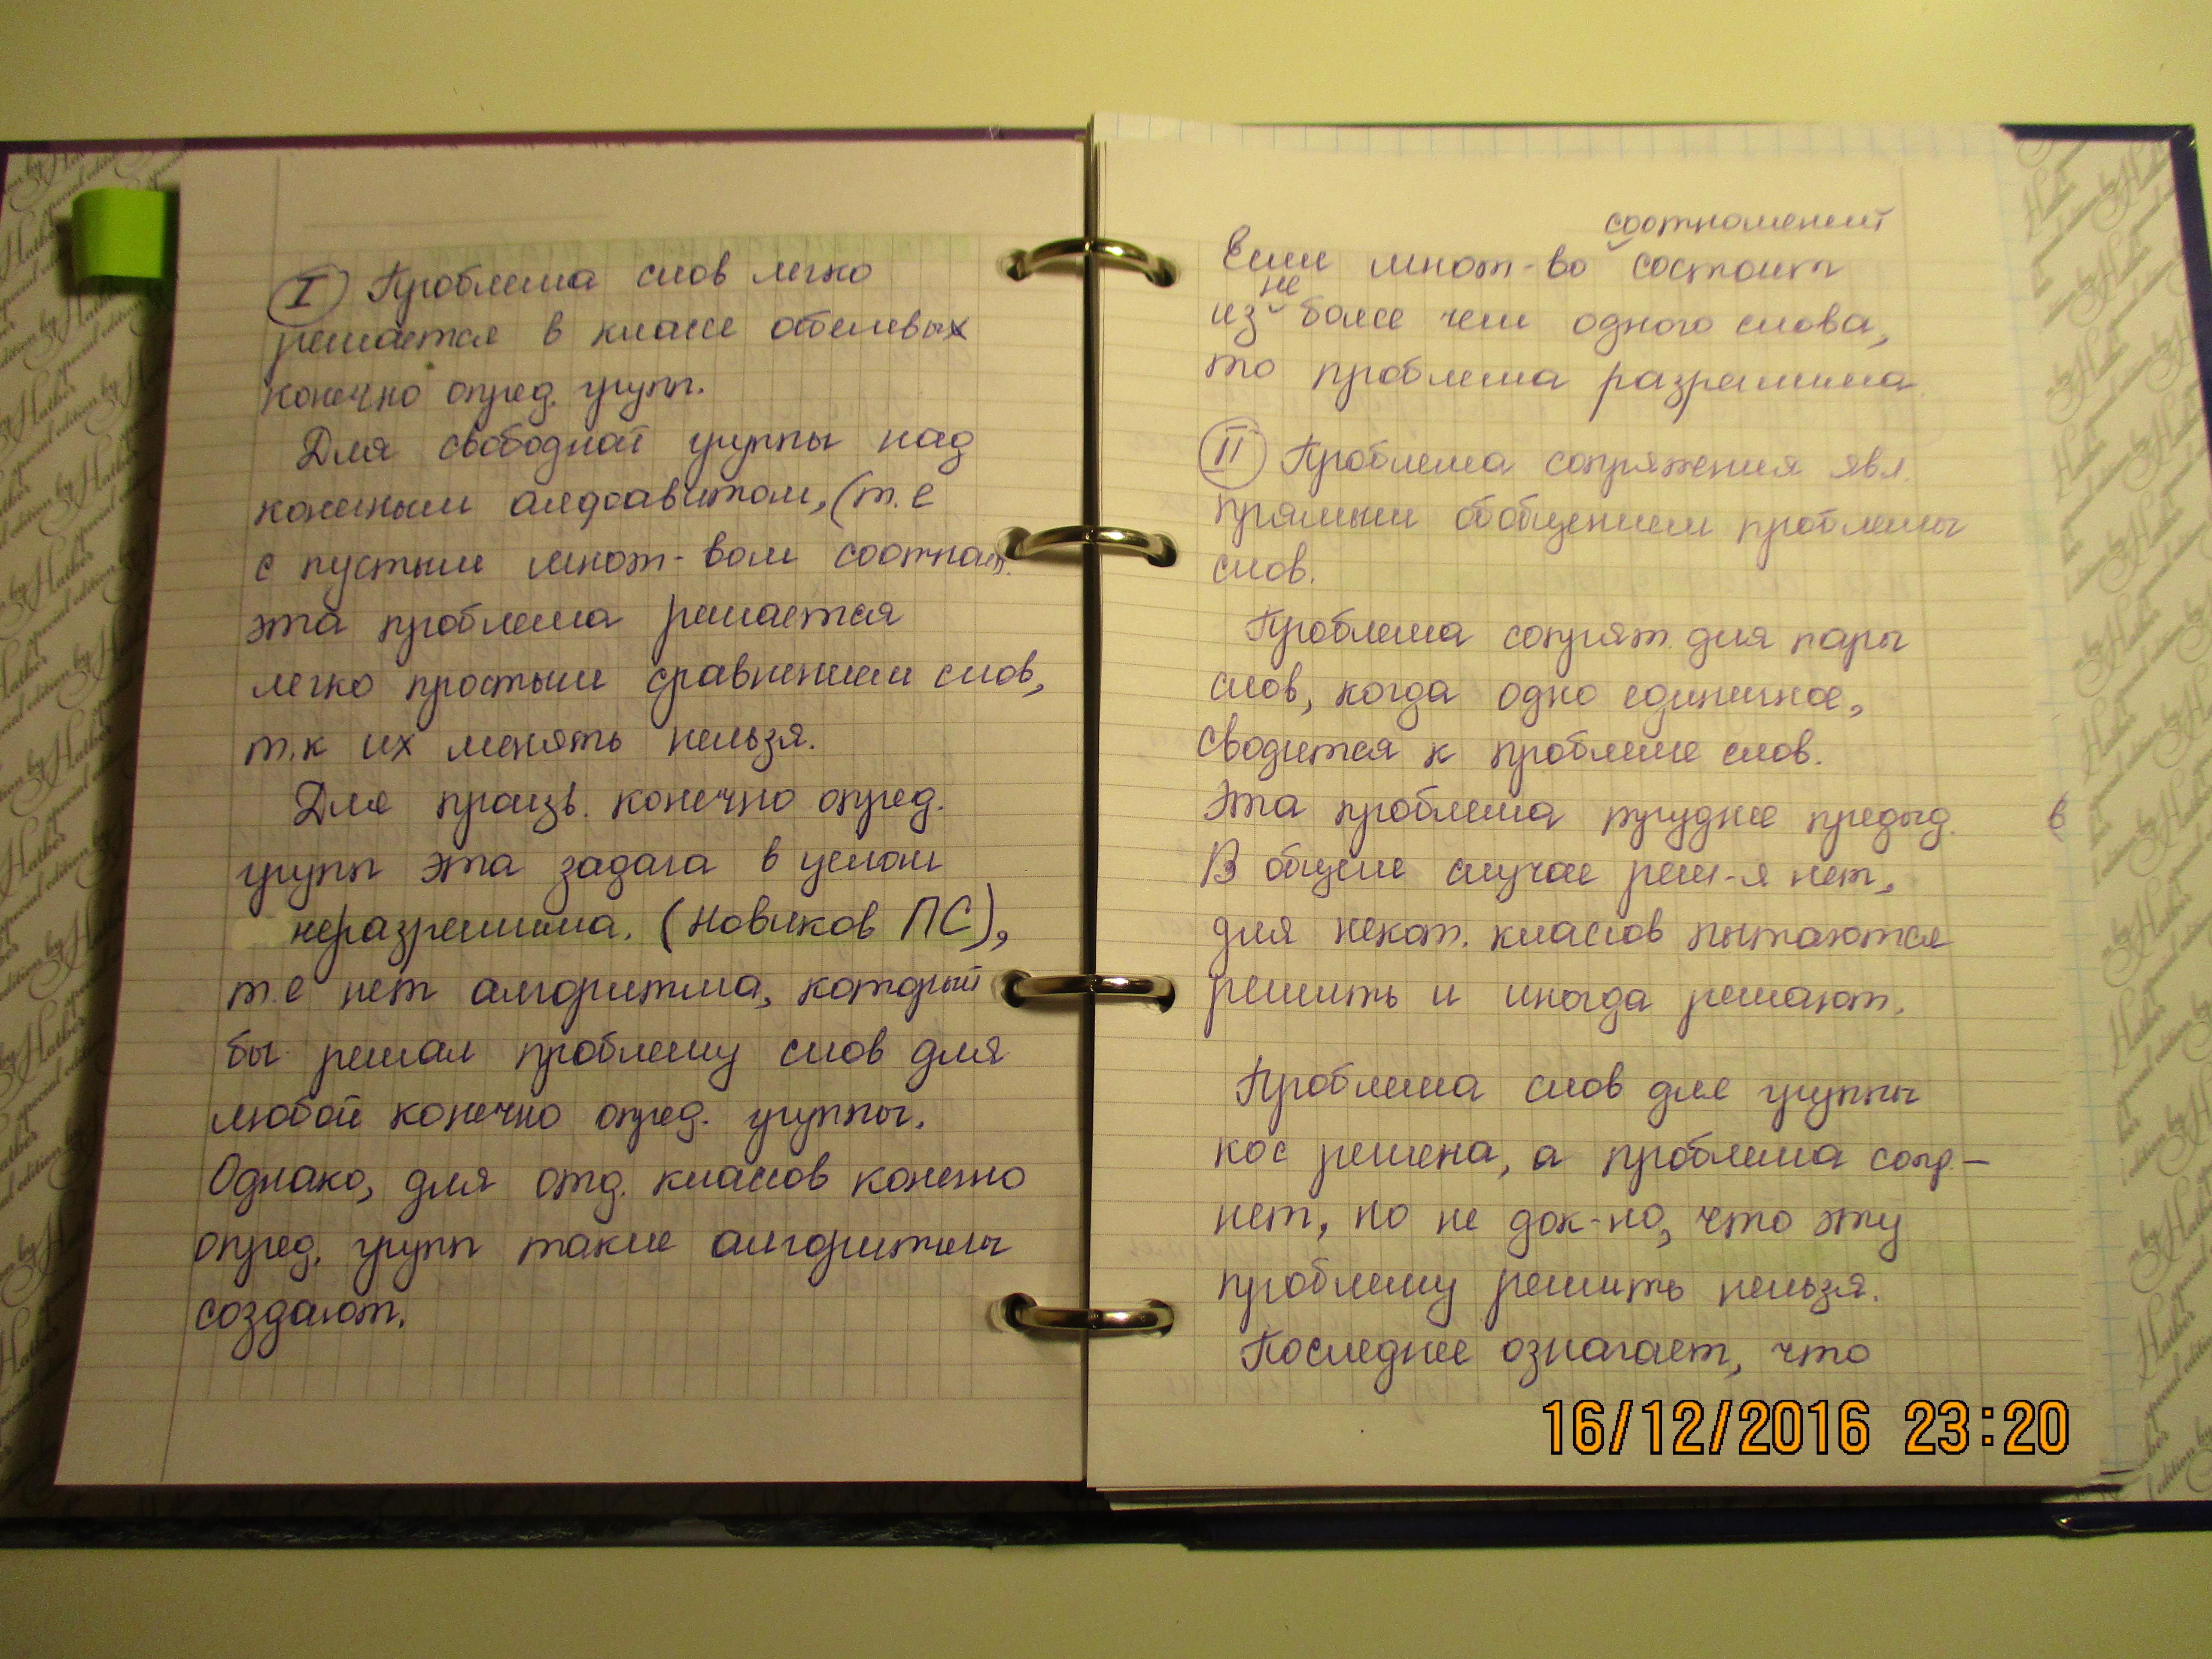 I Проблема слов легко
решается в классе абелевых
конечно опред. групп.
Для свободной группы над
конечным алфавитом, (т.е
с пустым множ-вом соотнош.
эта проблема решается
легко простым сравнением слов,
т.к их менять нельзя.
Для произв. конечно опред.
групп эта задача в целом
неразрешима. (Новиков ПС),
т.е нет алгоритма, который
бы решал проблему слов для
любой конечно опред. группы.
Однако, для отд. классов конечно
опред. групп такие алгоритмы
создают.
соотношений
Если множ-во состоит
не
из более чем одного слова,
то проблема разрешима
II Проблема сопряжения явл.
прямым обобщением проблемы
слов.
Проблема сопряж. для пары
слов, когда одно единичное,
сводится к проблеме слов.
Эта проблема труднее предыд.
В общем случае реш-я нет,
для некот. классов пытаются
решить и иногда решают.
Проблема слов для группы
кос решена, а проблема сопр. –
нет, но не док-но, что эту
проблему решить нельзя.
Последнее означает, что
16/12/2016 23:20